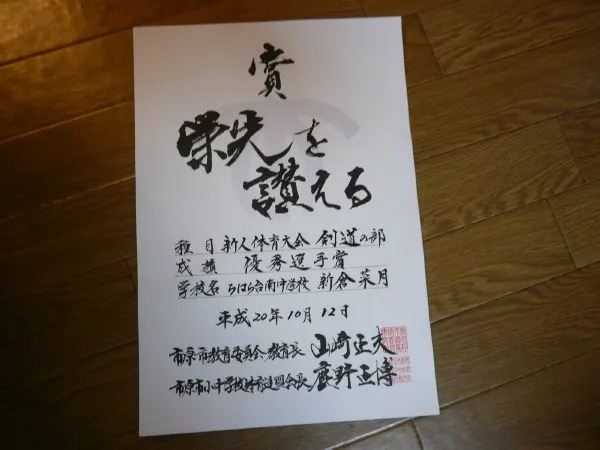 賞
栄光を
讃える
種目 新人体育大会 剣道の部
成績 優秀選手賞
学校名 ちはら台南中学校 新倉菜月
平成20年10月12日
市原市教育委員会教育長 山崎正夫
市原市小中学校体育連盟会長 鹿野正博